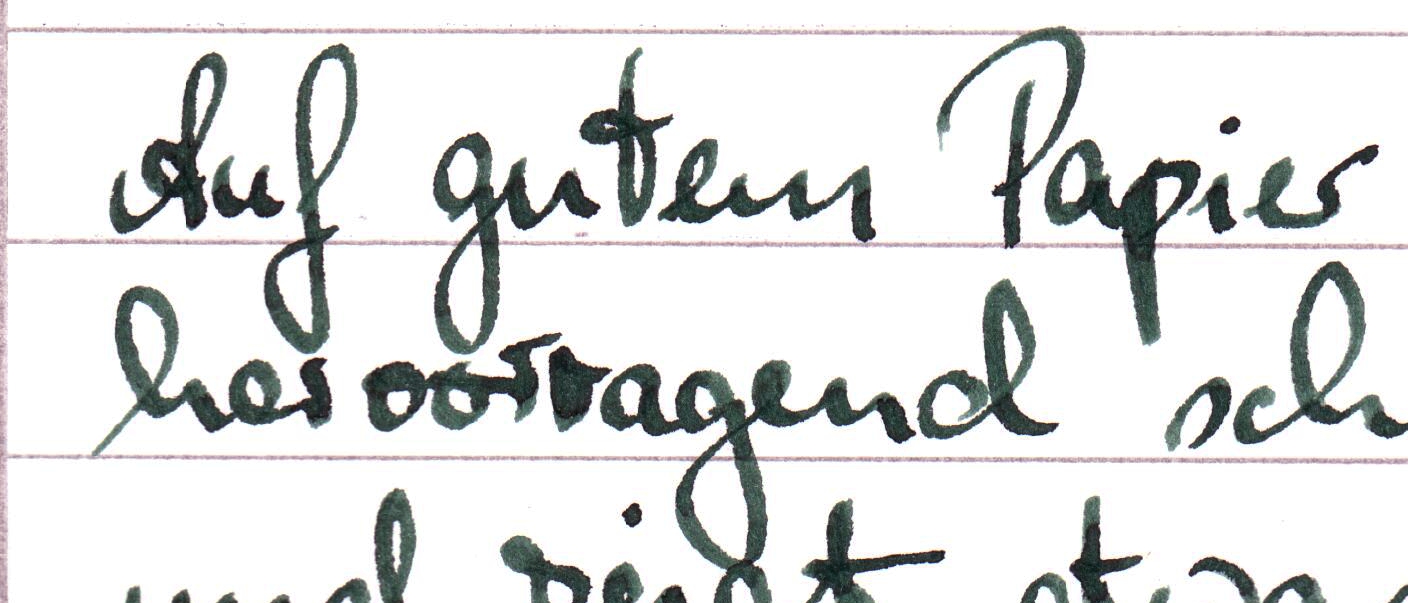 Auf gutem Papier
hervorragend sch
und zeigt etwa